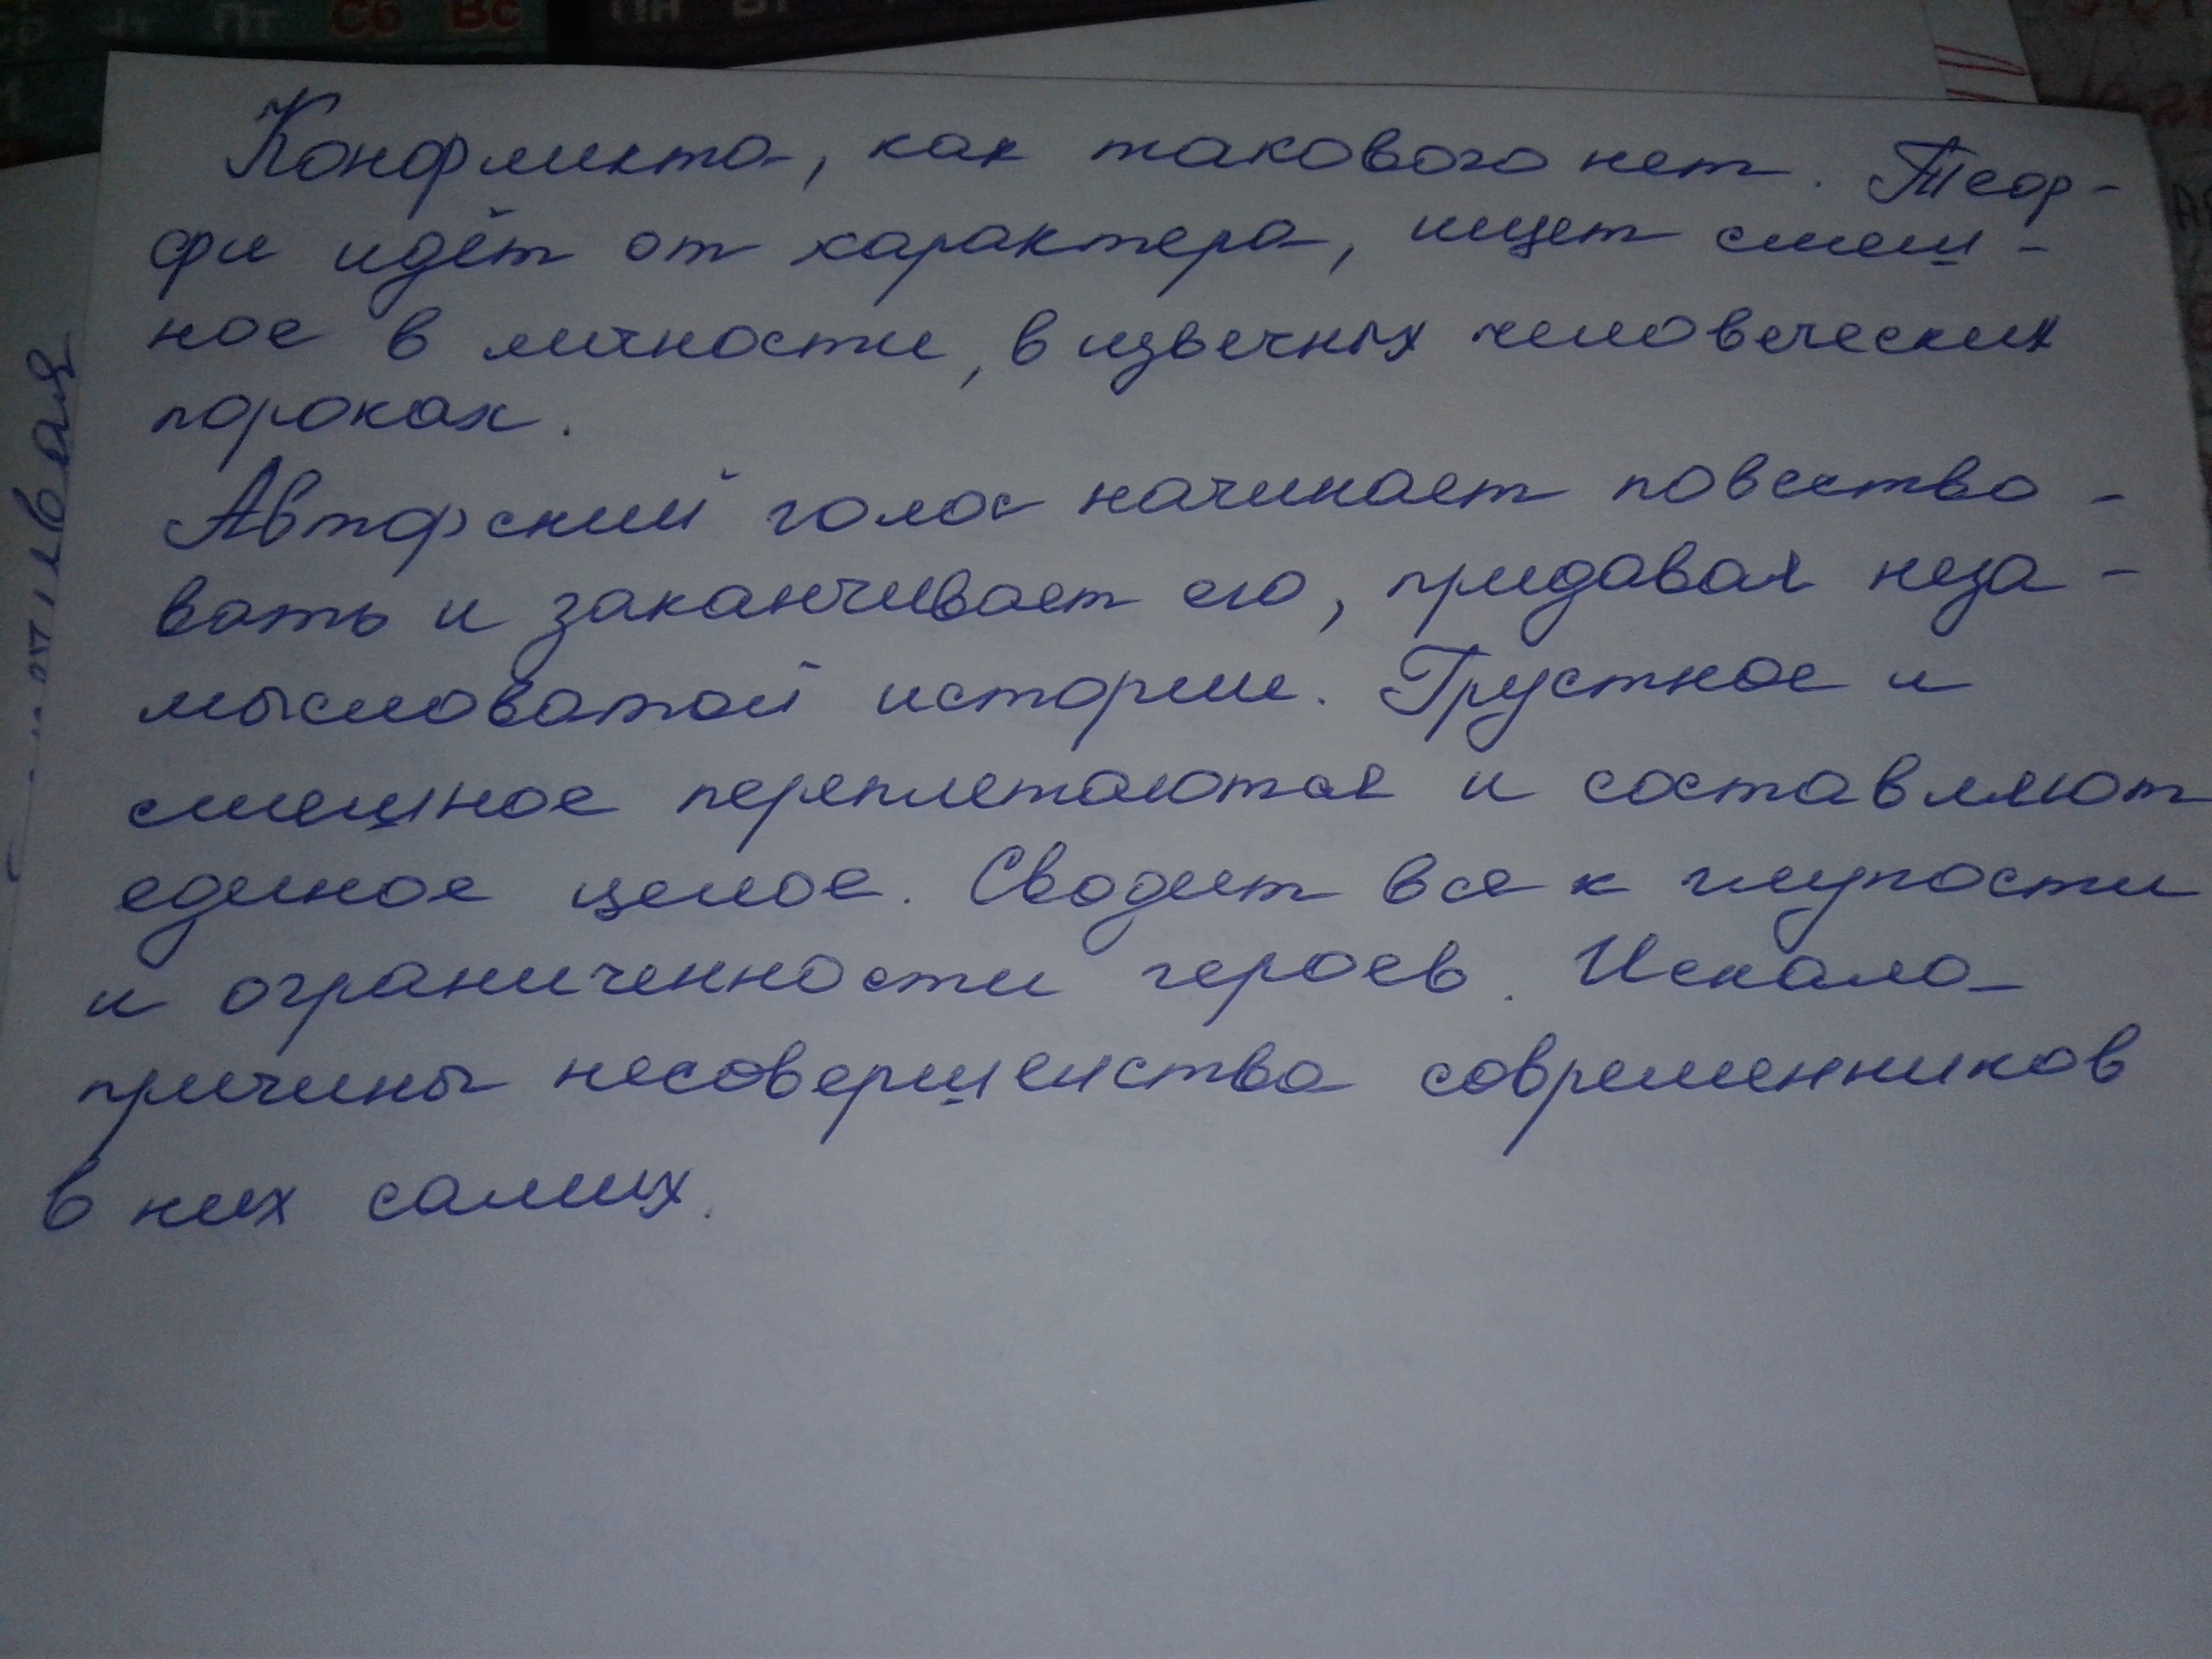 ср чт пт Сб Вс Пн Вт
Конфликта, как такового нет. Теор-
фи идёт от характера, ищет смеш-
ное в личности, в извечных человеческих
пороках.
Авторский голос начинает повество-
вать и заканчивает его, придавая неза-
мысловатой истории. Грустное и
смешное переплетаются и составляют
единое целое. Сводит все к глупости
и ограниченности героев. Искала
причины несовершенства современников
в них самих.